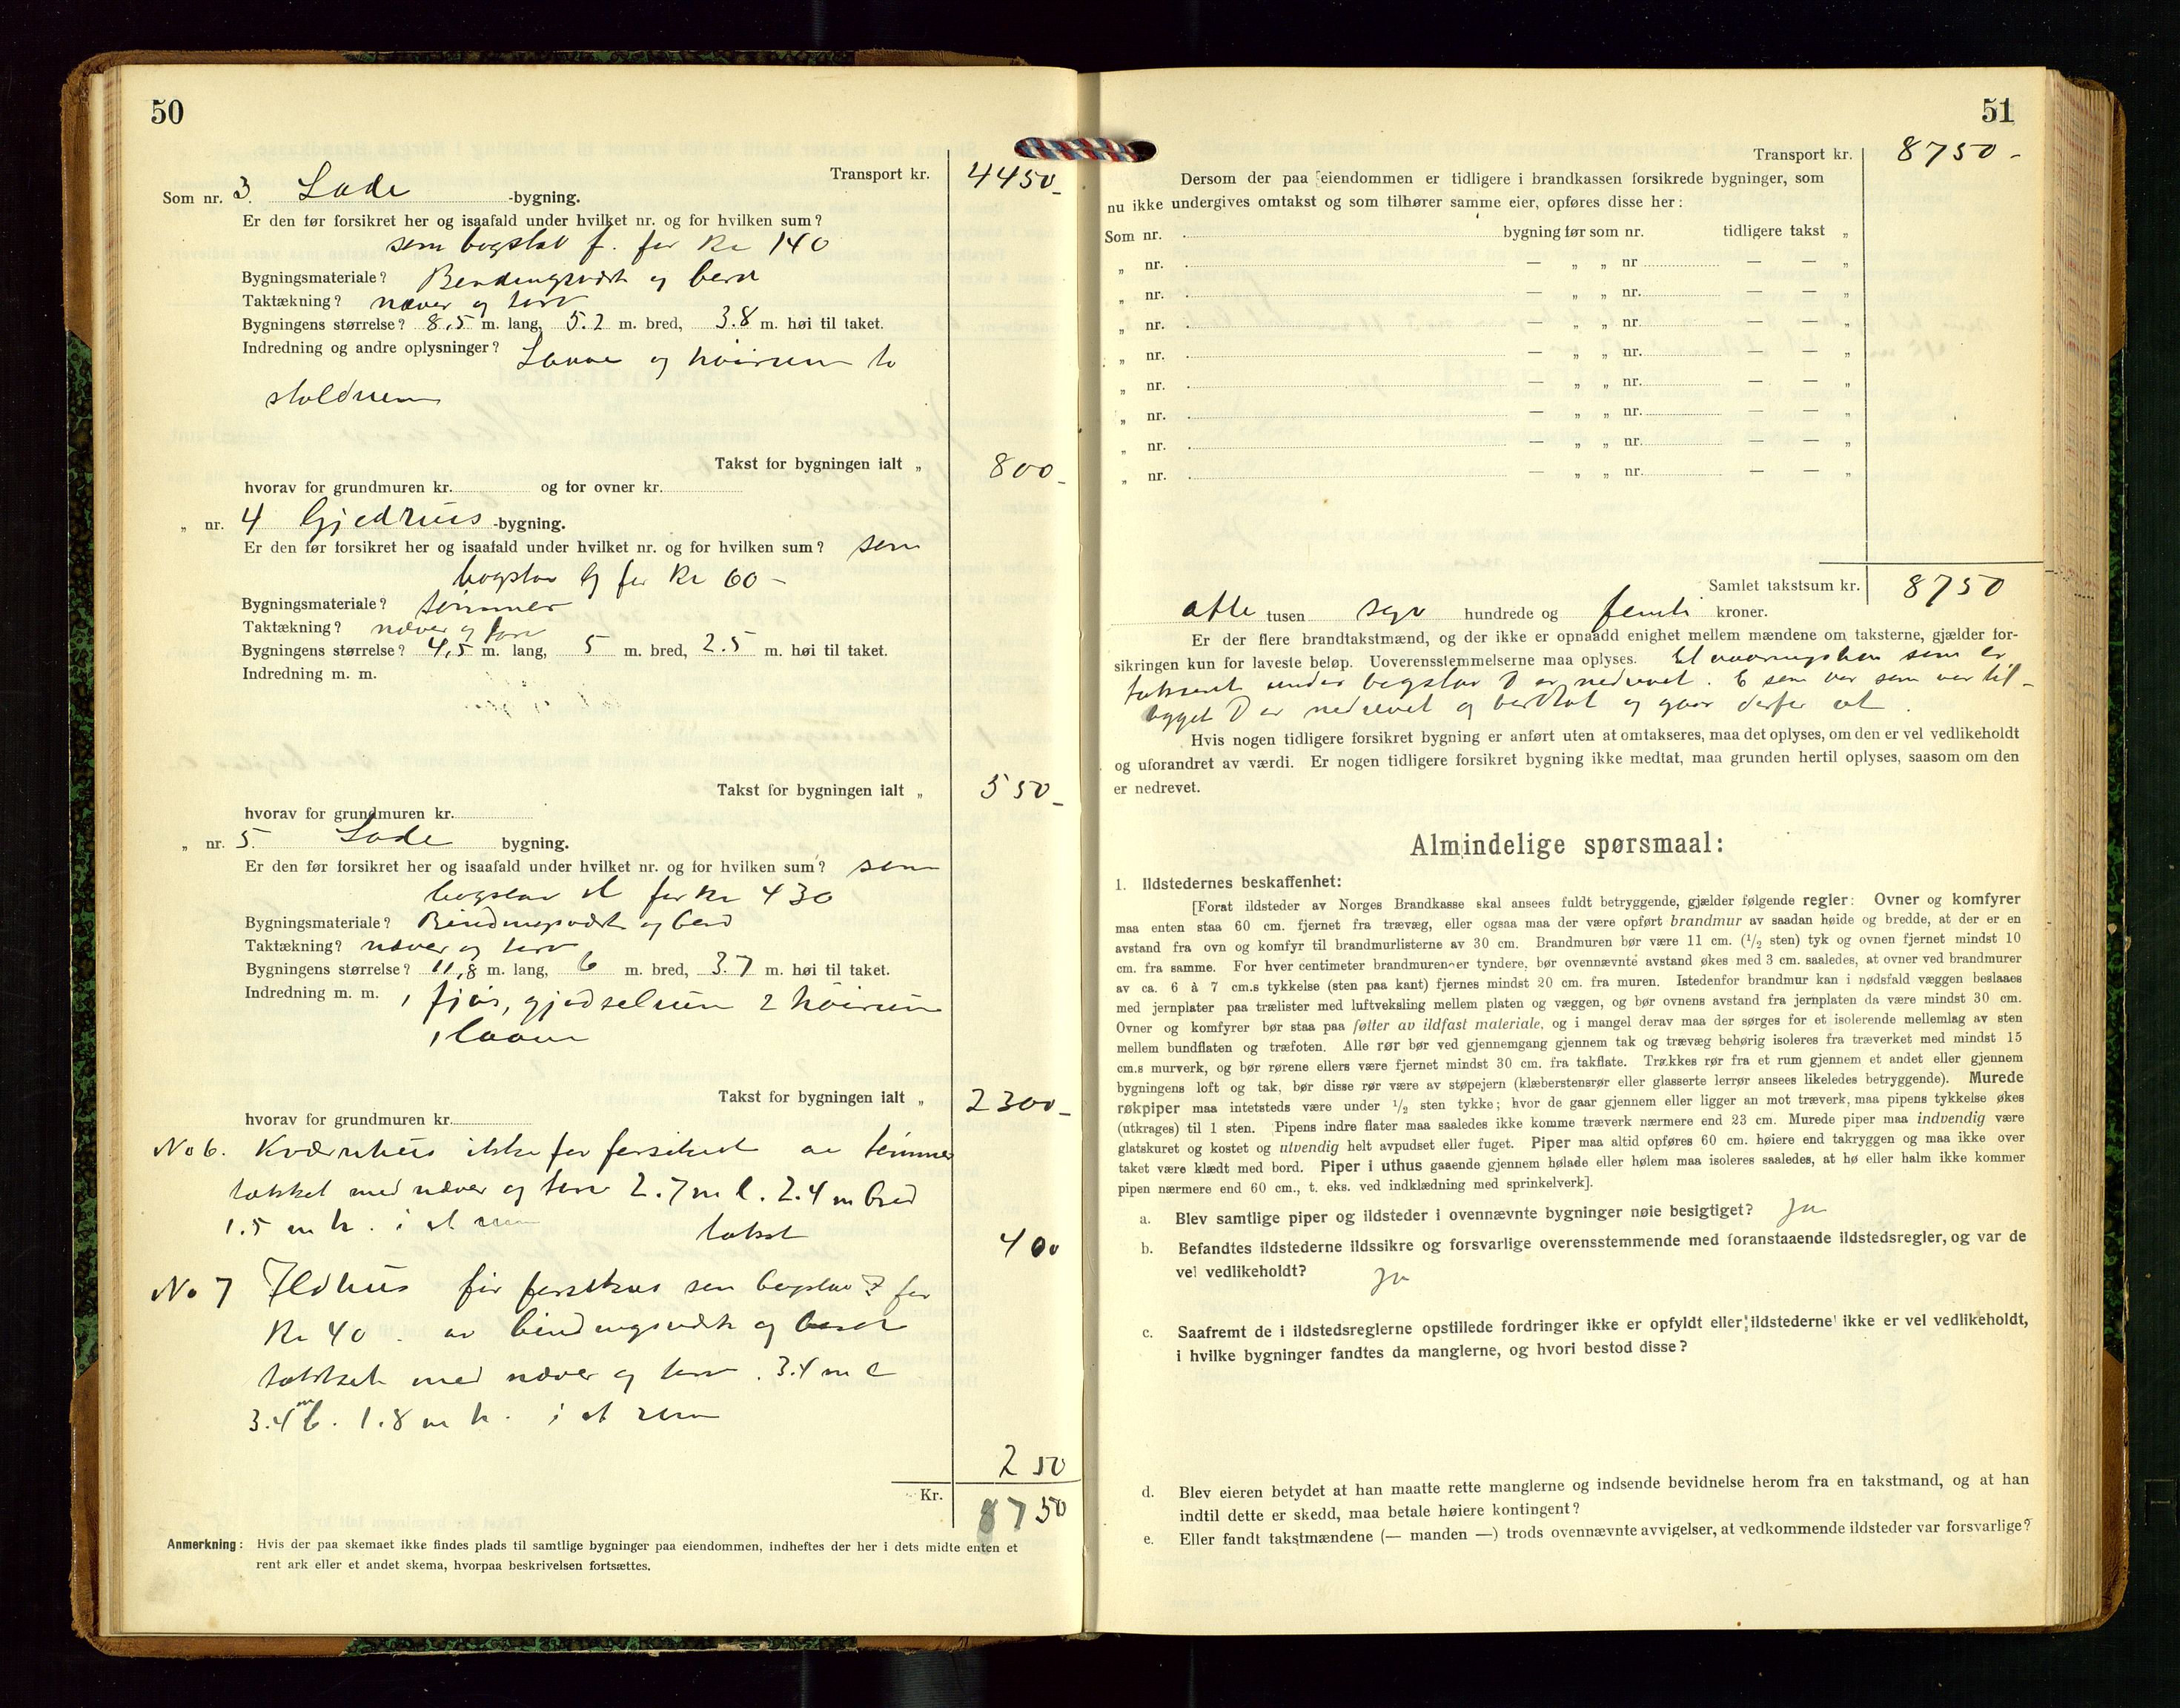 50
Transport kr. 4450-
Som nr. 3. Lade -bygning.
Er den før forsikret her og isaafald under hvilket nr. og for hvilken sum?
som bogstav f. for Kr 140
Bygningsmateriale? Bendingsverk og bord
Taktækning? næver og torv
Bygningens størrelse? 8,5 m. lang, 5.2 m. bred, 3.8 m. høi til taket.
Indredning og andre oplysninger? Laave og høirum to
staldrum
Takst for bygningen ialt „ 800-
hvorav for grundmuren kr. og for ovner kr.
„ nr. 4 Gjedhus -bygning.
Er den før forsikret her og isaafald under hvilket nr. og for hvilken sum? som
bogstav G for Kr 60-
Bygningsmateriale? tømmer
Taktækning? næver og torv
Bygningens størrelse? 4,5 m. lang, 5 m. bred, 2.5 m. høi til taket.
Indredning m. m.
Takst for bygningen ialt „ 550-
hvorav for grundmuren kr.
„ nr. 5. Lade bygning.
Er den før forsikret her og isaafald under hvilket nr. og for hvilken sum? som
bogstav for Kr 430
Bygningsmateriale? Bindingsverk og bord
Taktækning? næver og torv
Bygningens størrelse? 11,8 m. lang, 6 m. bred, 3.7 m. høi til taket.
Indredning m. m. 1 fjøs, gjødselrum 2 høirum
1 laave
Takst for bygningen ialt „ 2300-
hvorav for grundmuren kr.
No 6. Kværnhus ikke før forsikret av tømmer
tækket med næver og torv 2.7 m l. 2.4 m bred
1.5 m h. i et rum takst 400
No 7 Ildhus før forsikret som bogstav for
Kr 40. av bindingsverk og bord
tækket med næver og torv. 3.4 m l
3.4 m b. 1.8 m h. i et rum
250
Kr. 8750
Anmerkning: Hvis der paa skemaet ikke findes plads til samtlige bygninger paa eiendommen, indheftes der her i dets midte enten et
rent ark eller et andet skema, hvorpaa beskrivelsen fortsættes.
51
Transport kr. 8750-
Dersom der paa eiendommen er tidligere i brandkassen forsikrede bygninger, som
nu ikke undergives omtakst og som tilhører samme eier, opføres disse her:
Som nr. bygning før som nr. tidligere takst „
„ nr. — „ „ nr — — „
„ nr. — „ „ nr. — — „
„ nr. — „ „ nr. — — „
„ nr. — „ „ nr. — — „
„ nr. — „ „ nr. — — „
„ nr. — „ „ nr. — — „
„ nr. — „ „ nr. — — „
„ nr. — „ „ nr. — — „
Samlet takstsum kr. 8750
otte tusen syv hundrede og femti kroner.
Er der flere brandtakstmænd, og der ikke er opnaadd enighet mellem mændene om taksterne, gjælder for-
sikringen kun for laveste beløp. Uoverensstemmelserne maa oplyses. Et vaaningshus som er
taksert under bogstav D er nedrevet. E som var som var til-
bygget D er nedrevet og og gaar derfor ut.
Hvis nogen tidligere forsikret bygning er anført uten at omtakseres, maa det oplyses, om den er vel vedlikeholdt
og uforandret av værdi. Er nogen tidligere forsikret bygning ikke medtat, maa grunden hertil oplyses, saasom om den
er nedrevet.
Almindelige spørsmaal:
1. Ildstedernes beskaffenhet:
[Forat ildsteder av Norges Brandkasse skal ansees fuldt betryggende, gjælder følgende regler: Ovner og komfyrer
maa enten staa 60 cm. fjernet fra trævæg, eller ogsaa maa der være opført brandmur av saadan høide og bredde, at der er en
avstand fra ovn og komfyr til brandmurlisterne av 30 cm. Brandmuren bør være 11 cm. (1/2 sten) tyk og ovnen fjernet mindst 10
cm. fra samme. For hver centimeter brandmuren er tyndere, bør ovennævnte avstand økes med 3 cm. saaledes, at ovner ved brandmurer
av ca. 6 à 7 cm.s tykkelse (sten paa kant) fjernes mindst 20 cm. fra muren. Istedenfor brandmur kan i nødsfald væggen beslaaes
med jernplater paa trælister med luftveksling mellem platen og væggen, og bør ovnens avstand fra jernplaten da være mindst 30 cm.
Ovner og komfyrer bør staa paa føtter av ildfast materiale, og i mangel derav maa der sørges for et isolerende mellemlag av sten
mellem bundflaten og træfoten. Alle rør bør ved gjennemgang gjennem tak og trævæg behørig isoleres fra træverket med mindst 15
cm.s murverk, og bør rørene ellers være fjernet mindst 30 cm. fra takflate. Trækkes rør fra et rum gjennem et andet eller gjennem
bygningens loft og tak, bør disse rør være av støpejern (klæberstensrør eller glasserte lerrør ansees likeledes betryggende). Murede
røkpiper maa intetsteds være under 1/2 sten tykke; hvor de gaar gjennem eller ligger an mot træverk, maa pipens tykkelse økes
(utkrages) til 1 sten. Pipens indre flater maa saaledes ikke komme træverk nærmere end 23 cm. Murede piper maa indvendig være
glatskuret og kostet og utvendig helt avpudset eller fuget. Piper maa altid opføres 60 cm. høiere end takryggen og maa ikke over
taket være klædt med bord. Piper i uthus gaaende gjennem hølade eller hølem maa isoleres saaledes, at hø eller halm ikke kommer
pipen nærmere end 60 cm., t. eks. ved indklædning med sprinkelverk].
a. Blev samtlige piper og ildsteder i ovennævnte bygninger nøie besigtiget? ja
b. Befandtes ildstederne ildssikre og forsvarlige overensstemmende med foranstaaende ildstedsregler, og var de
vel vedlikeholdt? ja
c. Saafremt de i ildstedsreglerne opstillede fordringer ikke er opfyldt eller ildstederne ikke er vel vedlikeholdt,
i hvilke bygninger fandtes da manglerne, og hvori bestod disse?
d. Blev eieren betydet at han maatte rette manglerne og indsende bevidnelse herom fra en takstmand, og at han
indtil dette er skedd, maa betale høiere kontingent?
e. Eller fandt takstmændene (— manden —) trods ovennævnte avvigelser, at vedkommende ildsteder var forsvarlige?